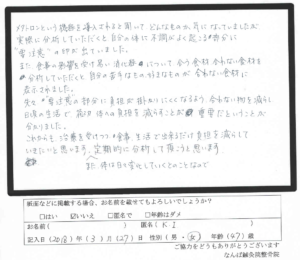 メタトロンという機器を導入されると聞いて、どんなものか、気になっていましたが
実際に分析していただくと、自分の体に不調がよく起こる部分に
"要注意"の印が出ていました。
また食事の影響を受け易い消化器について、合う食材、合わない食材も
分析していただくと、自分の苦手なもの好きなものが合わない食材に
表示されました。
先ず要注意の部分に負担が掛かりにくくなるよう、合わない物を減らし
日頃の生活で、親切 体への負担を減らすことが重要だということが
分かりました。
これからも治療を受けつつ食事、生活で出来るだけ負担を減らして
いきたいと思います。定期的に分析して頂こうと思います。
また、体は日々変化していくとのことなので
紙面などに掲載する場合、お名前を載せてもよろしいでしょうか?
□はい ☑いいえ □匿名で □年齢はダメ
お名前( ) 匿名( K I )
記入日(2018)年(3)月(27)日 性別(男・女) 年齢(47)歳
ご協力をどうもありがとうございます
なんば鍼灸院整骨院